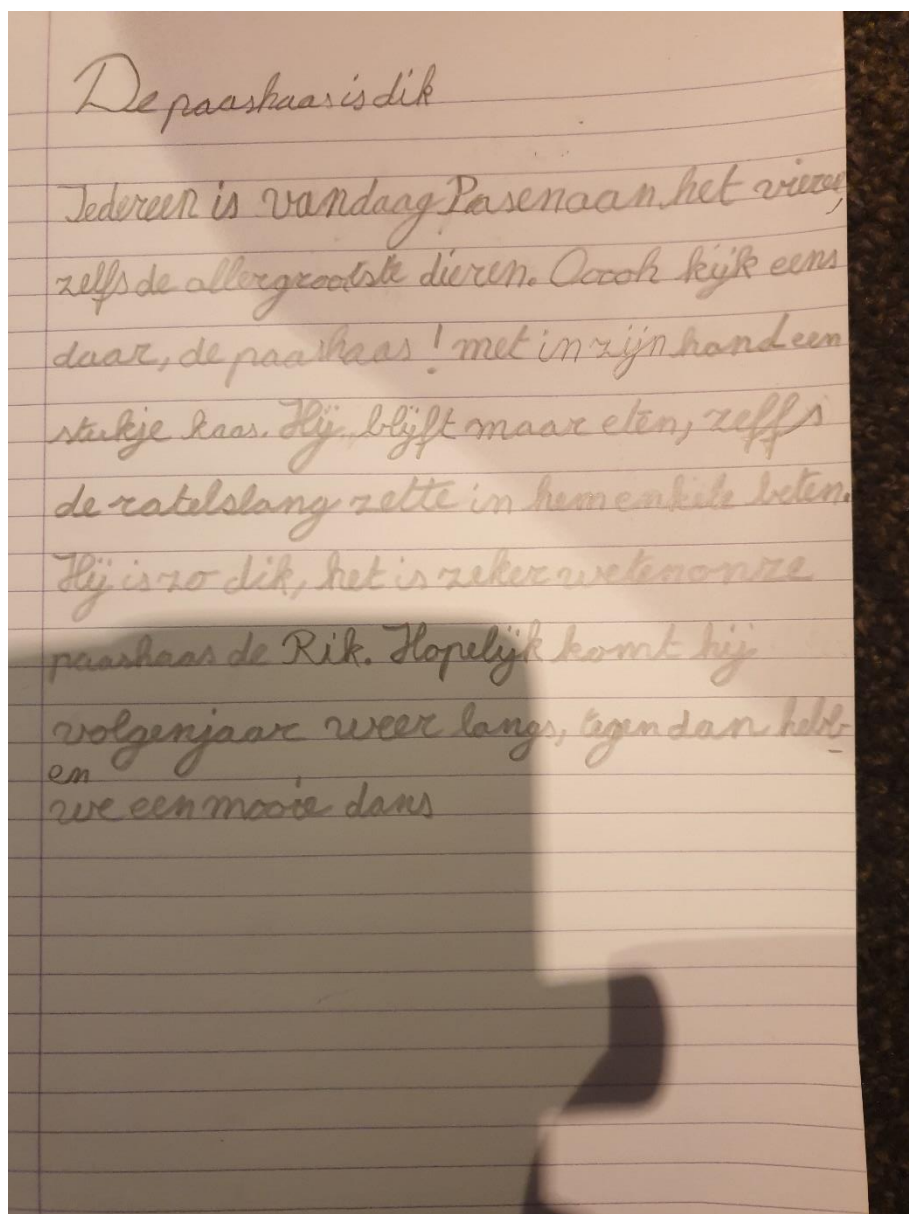 De paashaas is dik
Iedereen is vandaag Pasen aan het vieren,
zelfs de allergrootste dieren. Ooooh kijk eens
daar, de paashaas! met in zijn hand een
stukje kaas. Hij blijft maar eten, zelfs
de ratelslang zette in hem enkele beten.
Hij is zo dik, het is zeker weten onze
paashaas de Rik. Hopelijk komt hij
volgenjaar weer langs, tegen dan hebb-
en
we een mooie dans